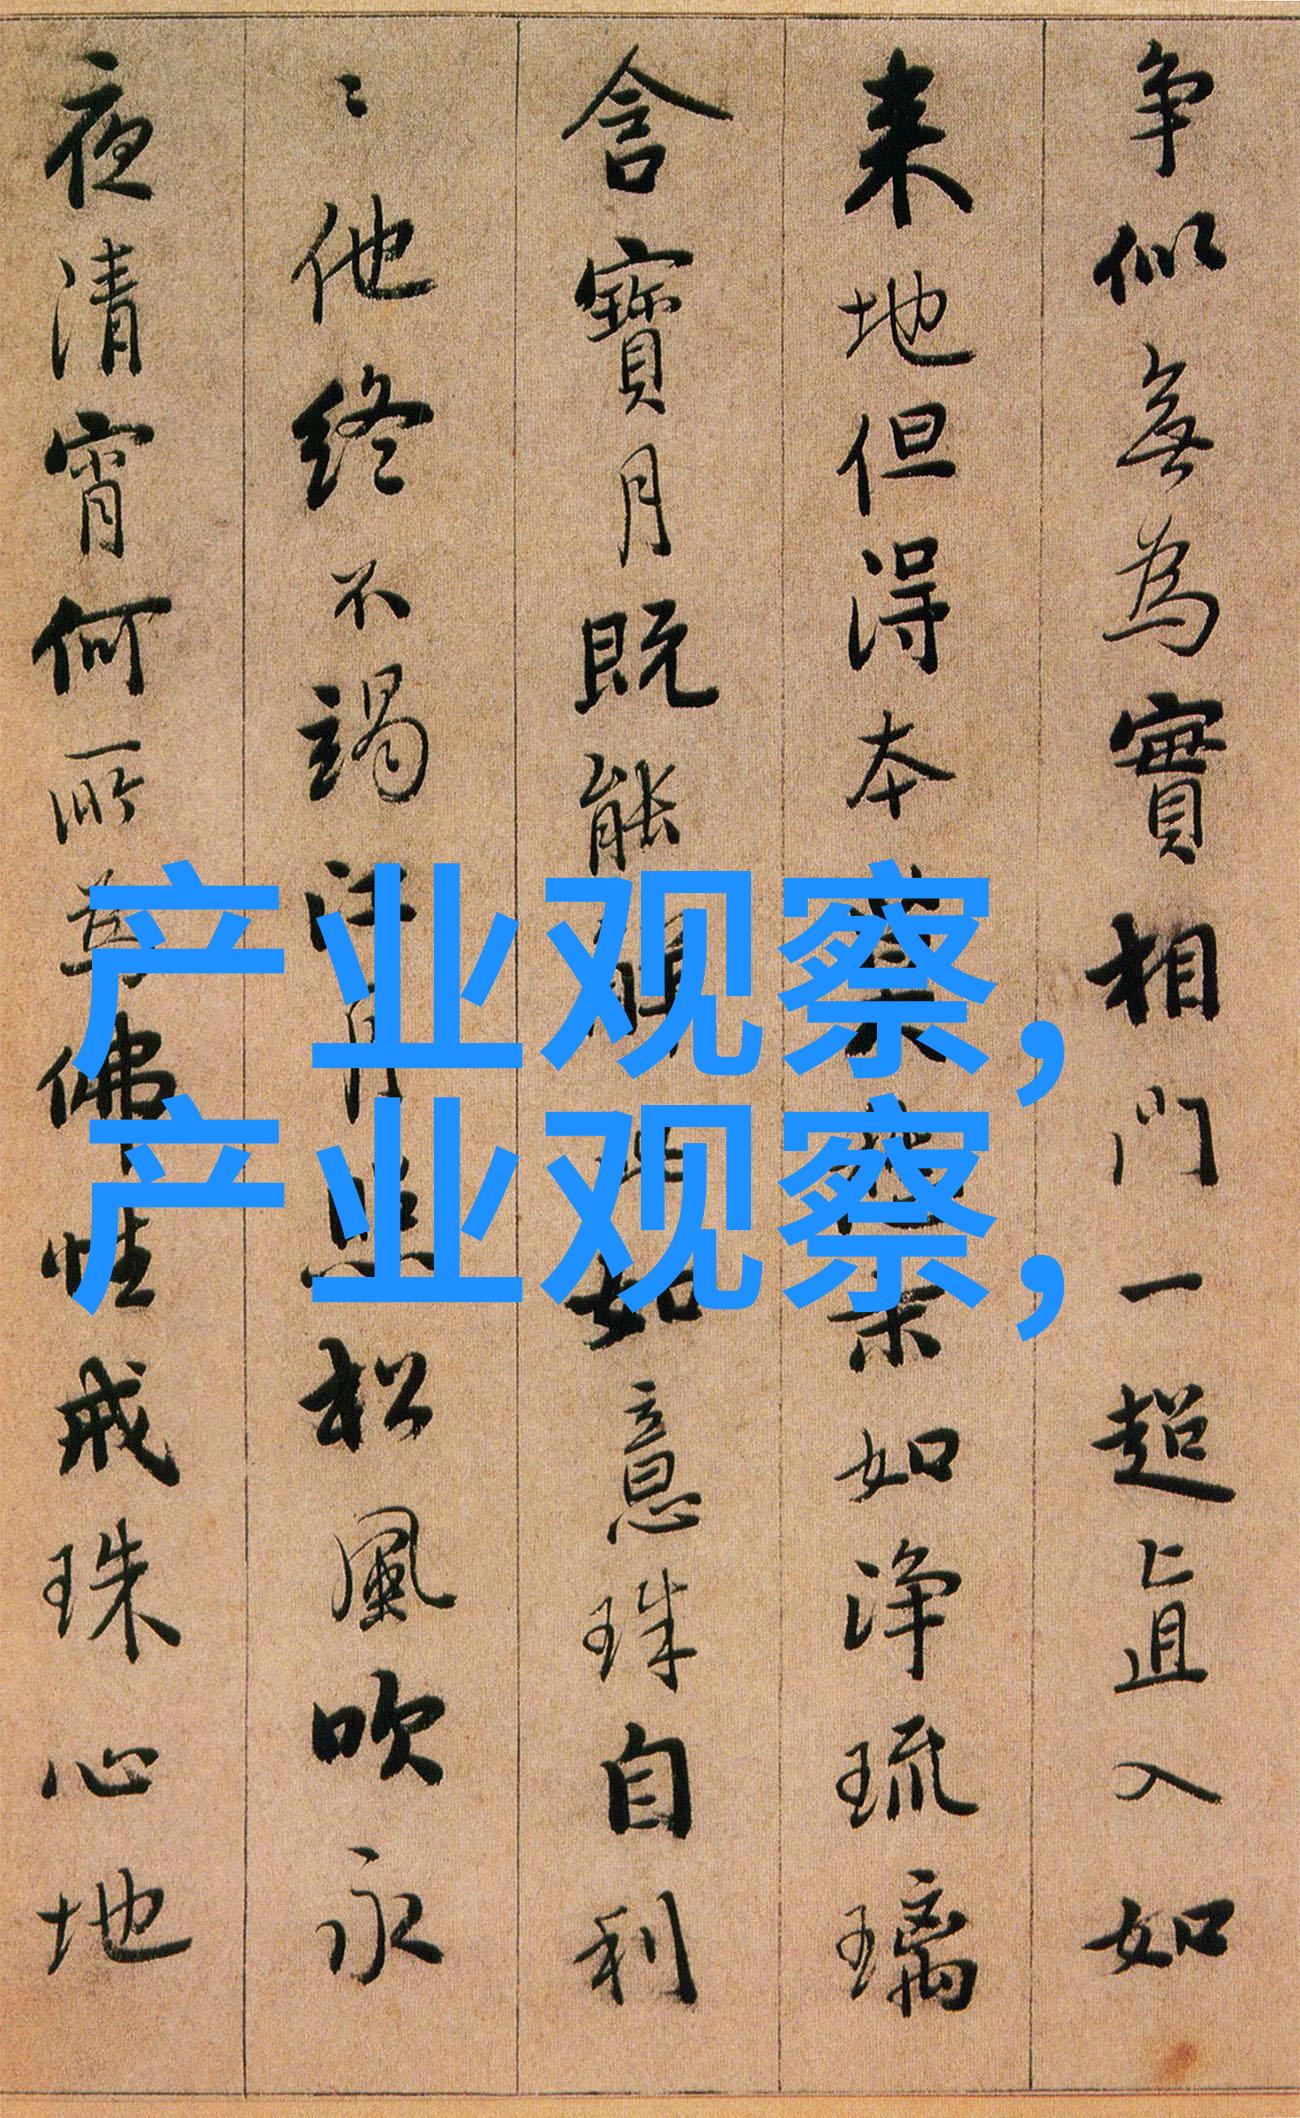 争似無為實相門一超直入如
来地但得本末如淨琉璃
含寶月既能如意珠自利
〻他終不竭江月照松風吹永
夜清宵何所為佛性戒珠心地
产业观察,
产业观察,